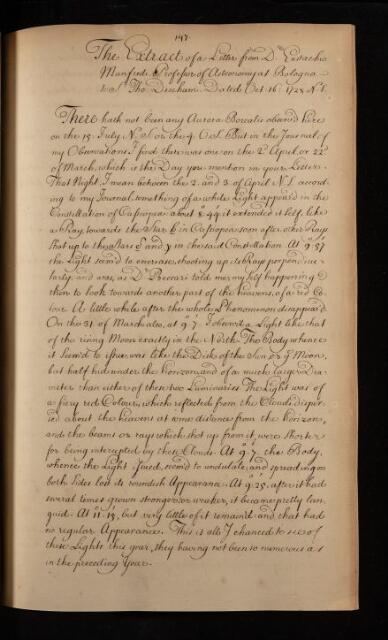 147
The Extract of a Letter from Dr Eustachio
Manfredi Professor of Astronomy at Bologna
to Mr Tho Derham. Dated Oct 16 1728 N S.
There hath not been any Aurora Borealis observ'd here
on the 15 July N. S. or the 4 O.S. But in the Journal of
my Observations I find there was one on the 2d April, or 22d
of March, which is the Day you mention in your Letter.
That Night, I mean between the 2 and 3 of April N S accord
ing to my Journal something of a white Light appear'd in the
Constellation of Cassiopea about 8 44 it extended it self like
a Ray towards the Star in Cassiopea soon after other Rays
shot up to the Stars and in the said Constellation At 9 57
the Light seem'd to encrease, shooting up its Rays perpendicu
larly and was, as Dr Beccari told me, my self happening
then to look towards another part of the heavens, of a red Co
lour. A little while after the whole Phenomenon disappear'd
On the 31 of March also, at 9 7 I observ'd a Light like that
of the rising Moon exactly in the North. The Body whence
it seem'd to issue was like the Disk of the Sun or ye Moon,
but half hid under the horizon, and of a much larger Dia
meter than either of these two Luminaries The Light was of
a fiery red Colour, which reflected from the Clouds disper
sed about the heavens at some distance from the horizon,
and the beams or rays which shot up from it, were shorter
for being intercepted by these Clouds. At 9 7 the Body,
whence the Light issued, seem'd to undulate, and spreading on
both Sides lost its roundish Appearance. At 9 25, after it had
several times grown stronger or weaker, it became pretty lan
guid. At 11 19, but very little of it remain'd and that had
no regular Appearance. This is all I chanced to see of
these Lights this year, they having not been so numerous as
in the preceding Year.